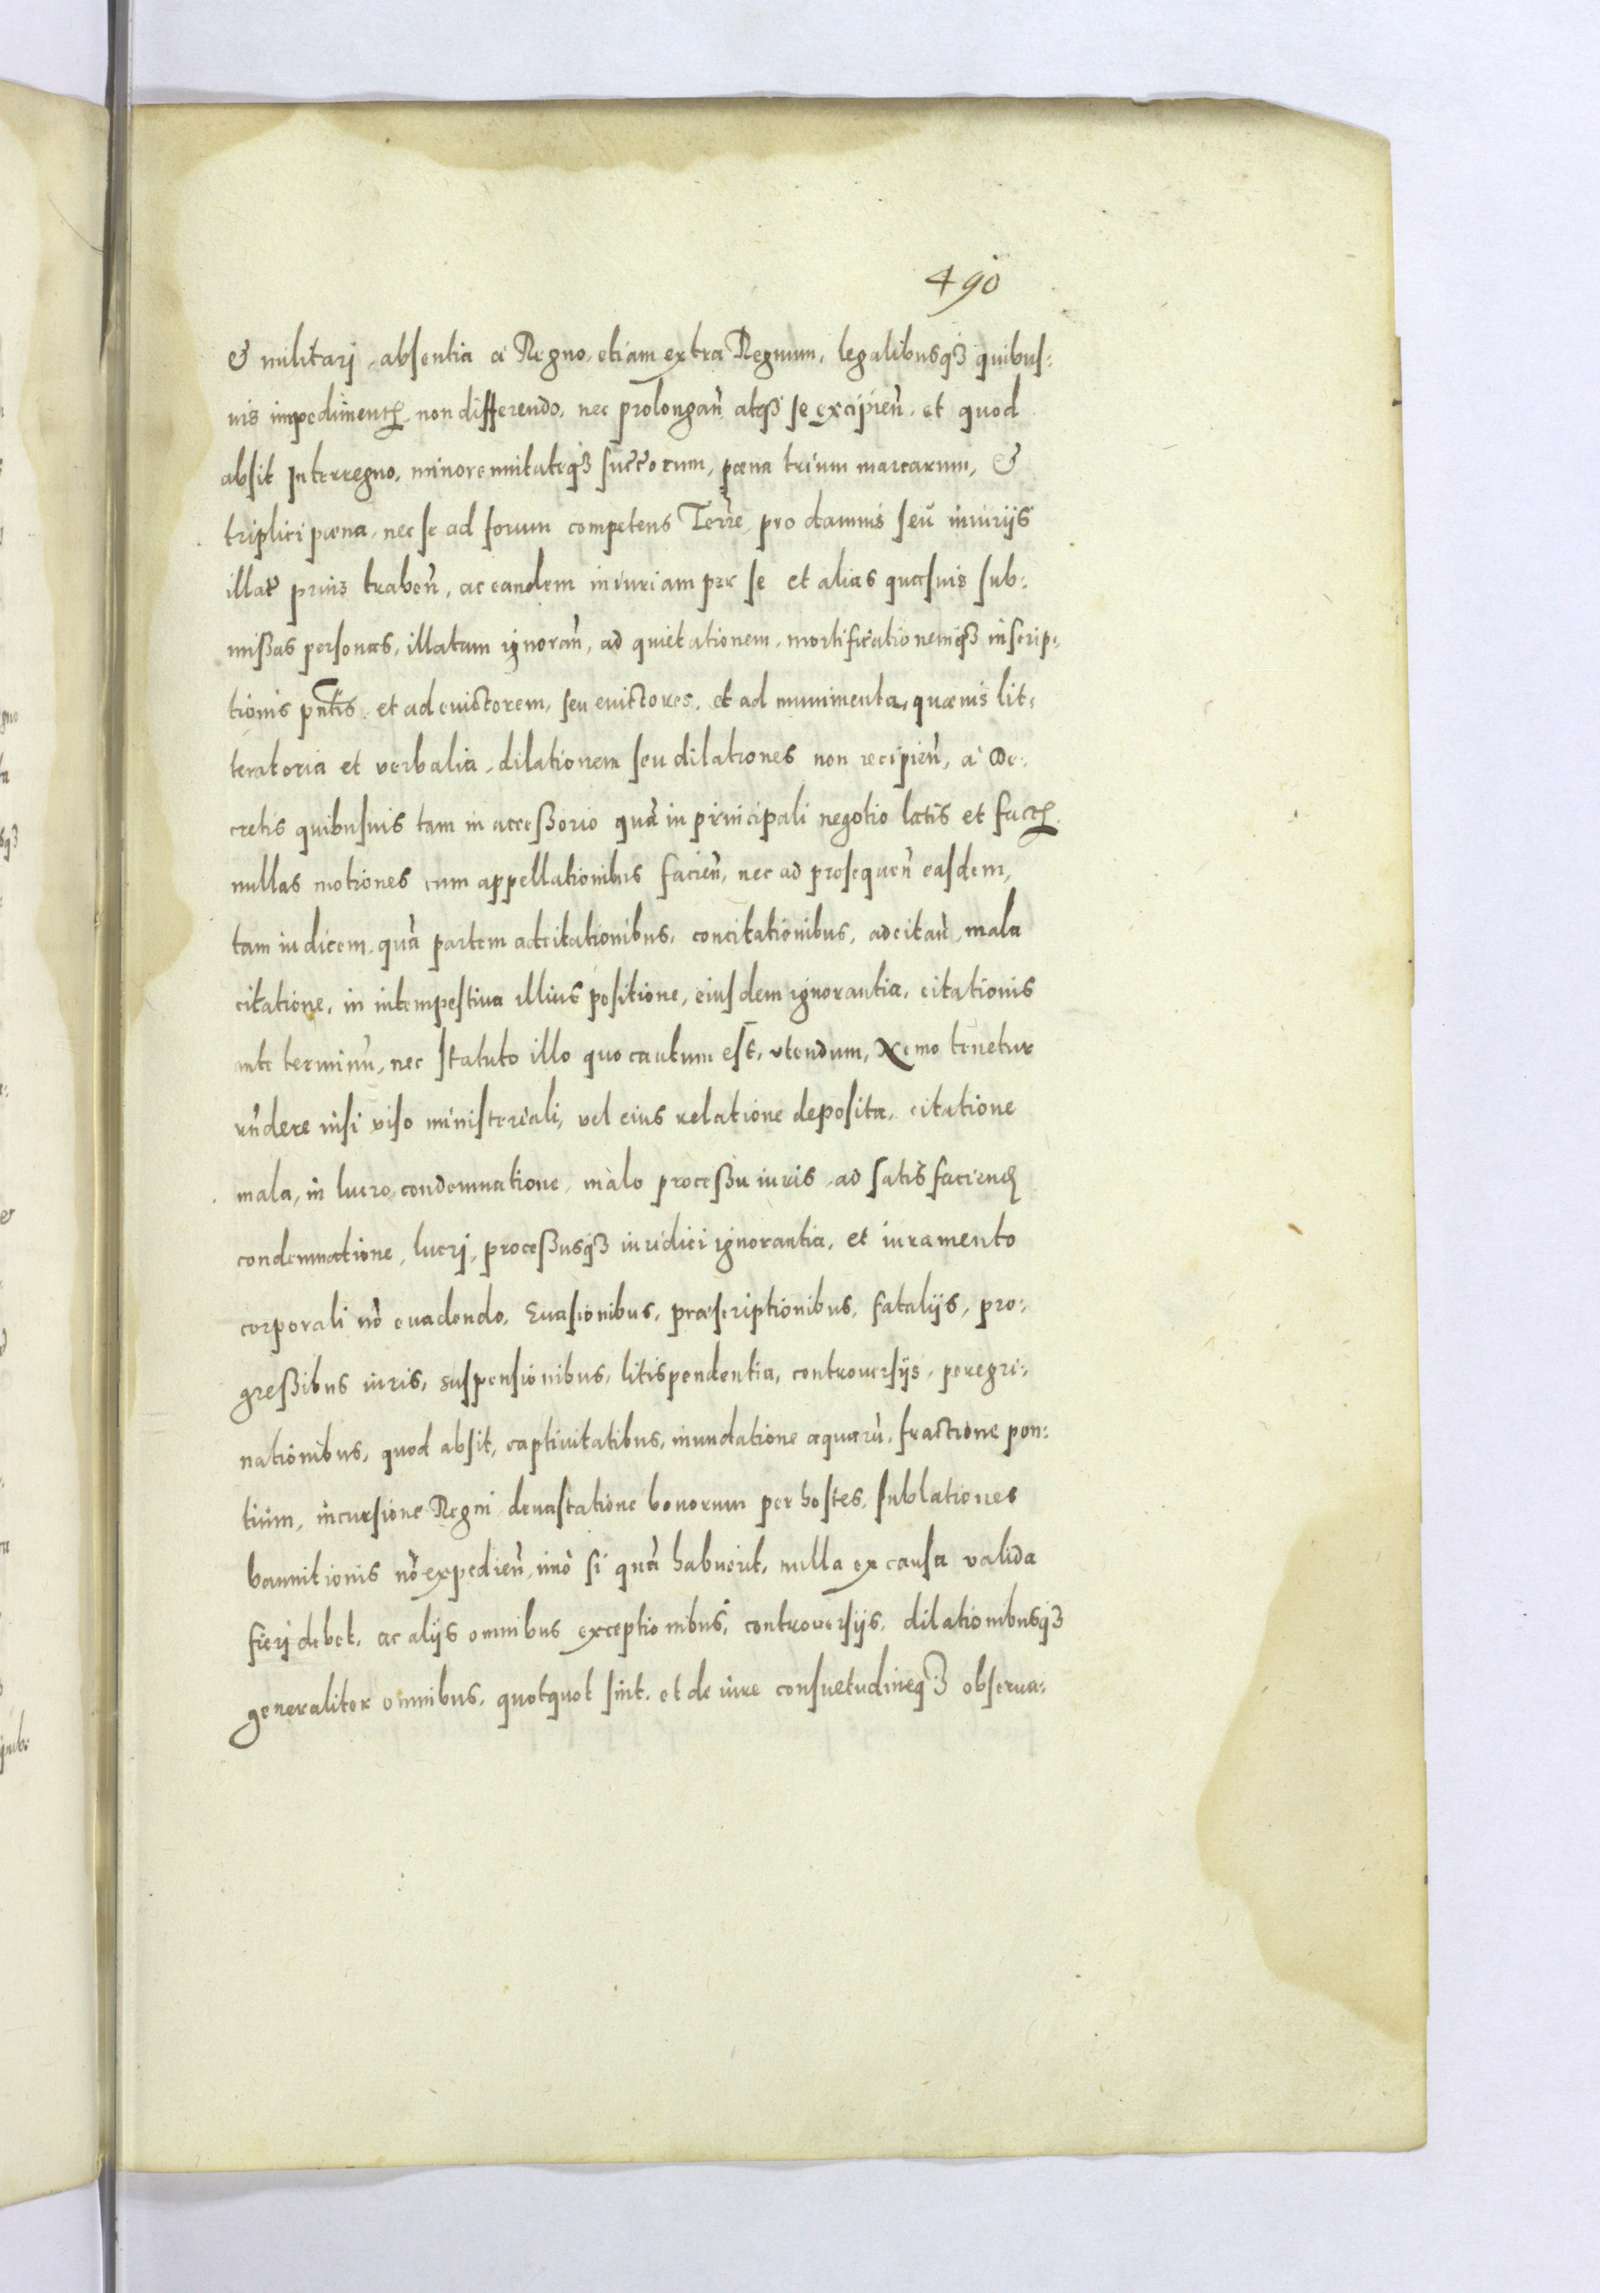 490
& militarj, absentia à Regno, etiam extra Regnum, legalibusq₃ quibus⸗
vis impedimentꝭ non differendo, nec prolongan̄ atq₃ se excipien̄, et quod
absit Interregno, minorennitateq₃ succorum, pœna trium marcarum, &
triplici pœna, nec se ad forum competens Terr̄e pro damnis seu iniurijs
illat̄ prius trahen̄, ac eandem iniuriam per se et alias quasuis sub⸗
missas personas, illatam ignoran̄, ad quietationem, mortificationemq₃ inscrip⸗
tionis pn̄tis et ad euictorem, seu euictores, et ad munimenta, quæuis lit⸗
teratoria et verbalia, dilationem seu dilationes non recipien̄, à De⸗
cretis quibusuis tam in accessorio quā in principali negotio latis et factꝭ
nullas motiones cum appellationibus facien̄, nec ad prosequen̄ easdem,
tam iudicem quā partem adcitationibus, concitationibus, adcitan̄ mala
citatione, in intempestiua illius positione, eiusdem ignorantia, citationis
ante terminū, nec statuto illo quo cautum est, vtendum, Nemo tenetur
rn̄dere nisi viso ministeriali, vel eius relatione deposita, citatione
mala, in lucro, condemnatione, malo processu iuris, ad satisfaciend
condemnatione, lucrj, processusq₃ iuridici ignorantia, et iuramento
corporali nō euadendo, Euasionibus, præscriptionibus, fatalijs, pro⸗
gressibus iuris, suspensionibus, litispendentia, controuersijs, peregri⸗
nationibus, quod absit, captiuitatibus, inundatione aquarū, fractione pon⸗
tium, incursione Regni deuastatione bonorum per hostes, sublationes
bannitionis nō expedien̄, imò si quā habuerit, nulla ex causa valida
fierj debet, ac alijs omnibus exceptionibus, controuersijs, dilationibusq₃
generaliter omnibus, quotquot sint, et de iure consuetudineq₃ obserua⸗